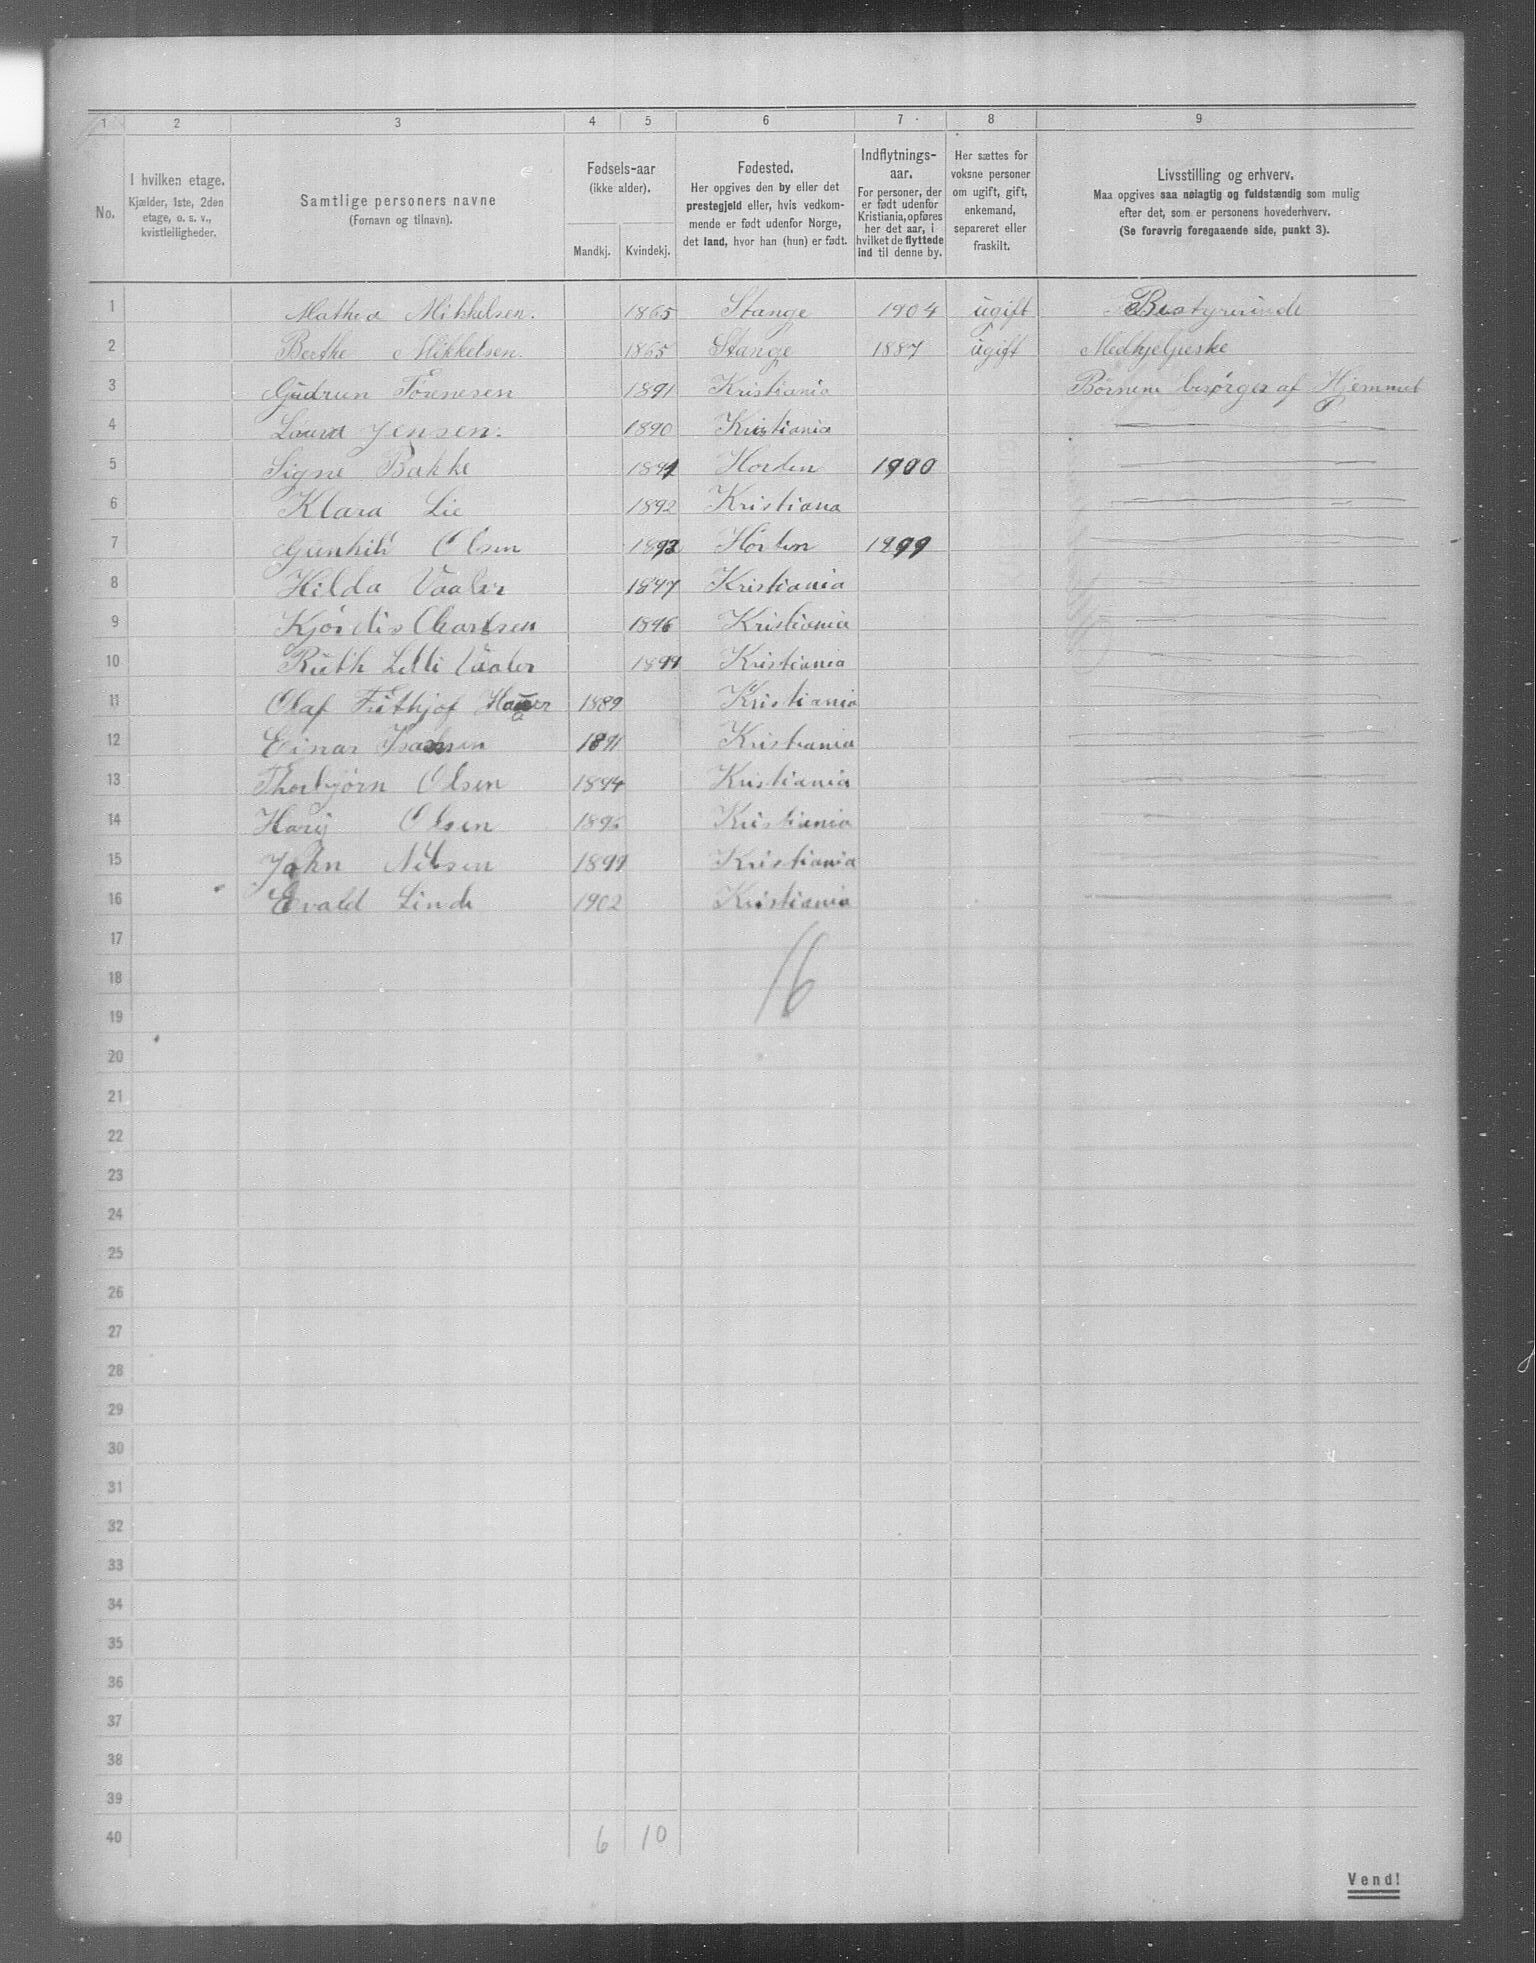 1 2 3 4 5 6 7 8 9
No.
I hvilken etage.
Kjælder, 1ste, 2den
etage, o. s. v.,
kvistleiligheder.
Samtlige personers navne
(Fornavn og tilnavn).
Fødsels-aar
(ikke alder).
Mandkj. Kvindekj.
Fødested.
Her opgives den by eller det
prestegjeld eller, hvis vedkom-
mende er født udenfor Norge,
det land, hvor han (hun) er født.
Indflytnings-
aar.
For personer, der
er født udenfor
Kristiania, opføres
her det aar, i
hvilket de flyttede
ind til denne by.
Her sættes for
voksne personer
om ugift, gift,
enkemand,
separeret eller
fraskilt.
Livsstilling og erhverv.
Maa opgives saa nøiagtig og fuldstændig som mulig
efter det, som er personens hovederhverv.
(Se forøvrig foregaaende side, punkt 3).
1 Mathea Mikkelsen. 1865 Stange 1904 ugift Bestyrerinde
2 Berthe Mikkelsen. 1865 Stange 1887 ugift Medhjelpeske
3 Gudrun 1891 Kristiania Børnene besørges af Hjemmet
4 Laura Jensen. 1890 Kristiania
5 Signe Bakke 1891 Horten 1900
6 Klara Lie 1892 Kristiana
7 Gunhild Olsen 1893 Horten 1899
8 Hilda Vaaler 1897 Kristiania
9 1896 Kristiania
10 Ruth Lilli Vaaler 1899 Kristiania
11 Olaf Frithjof 1889 Kristiania
12 Einar 1891 Kristiania
13 Thorbjørn Olsen 1894 Kristiania
14 Harij Olsen 1896 Kristiania
15 John Nilsen 1899 Kristiania
16 Evald Linde 1902 Kristiania
17
16
18
19
20
21
22
23
24
25
26
27
28
29
30
31
32
33
34
35
36
37
38
39
40 6 10
Vend!